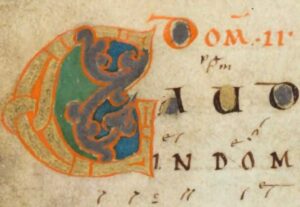 DOM̃·II·
GAUD
INDOM